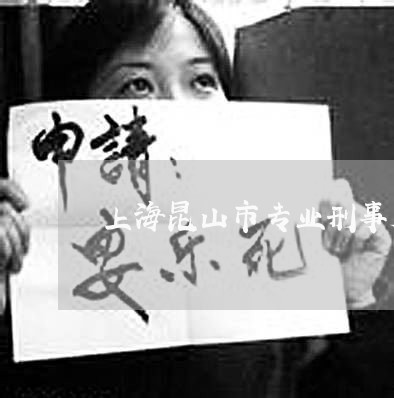 申請：
上海昆山市专业刑事
安乐死